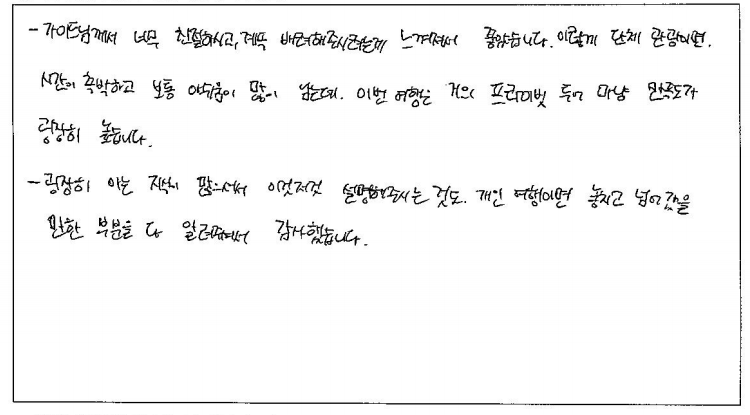 - 가이드님께서 너무 친절하시고, 계속 배려해주시려는게 느껴져서 좋았습니다. 이렇게 단체 관광이면.
시간이 촉박하고 보통 아쉬움이 많이 남는데. 이번 여행은 거의 프라이빗 투어 마냥 만족도가
굉장히 높습니다.
- 굉장히 아는 지식이 많으셔서 이것저것 설명해주시는 것도. 개인 여행이면 놓치고 넘어갔을
만한 부분을 다 알려주셔서 감사했습니다.